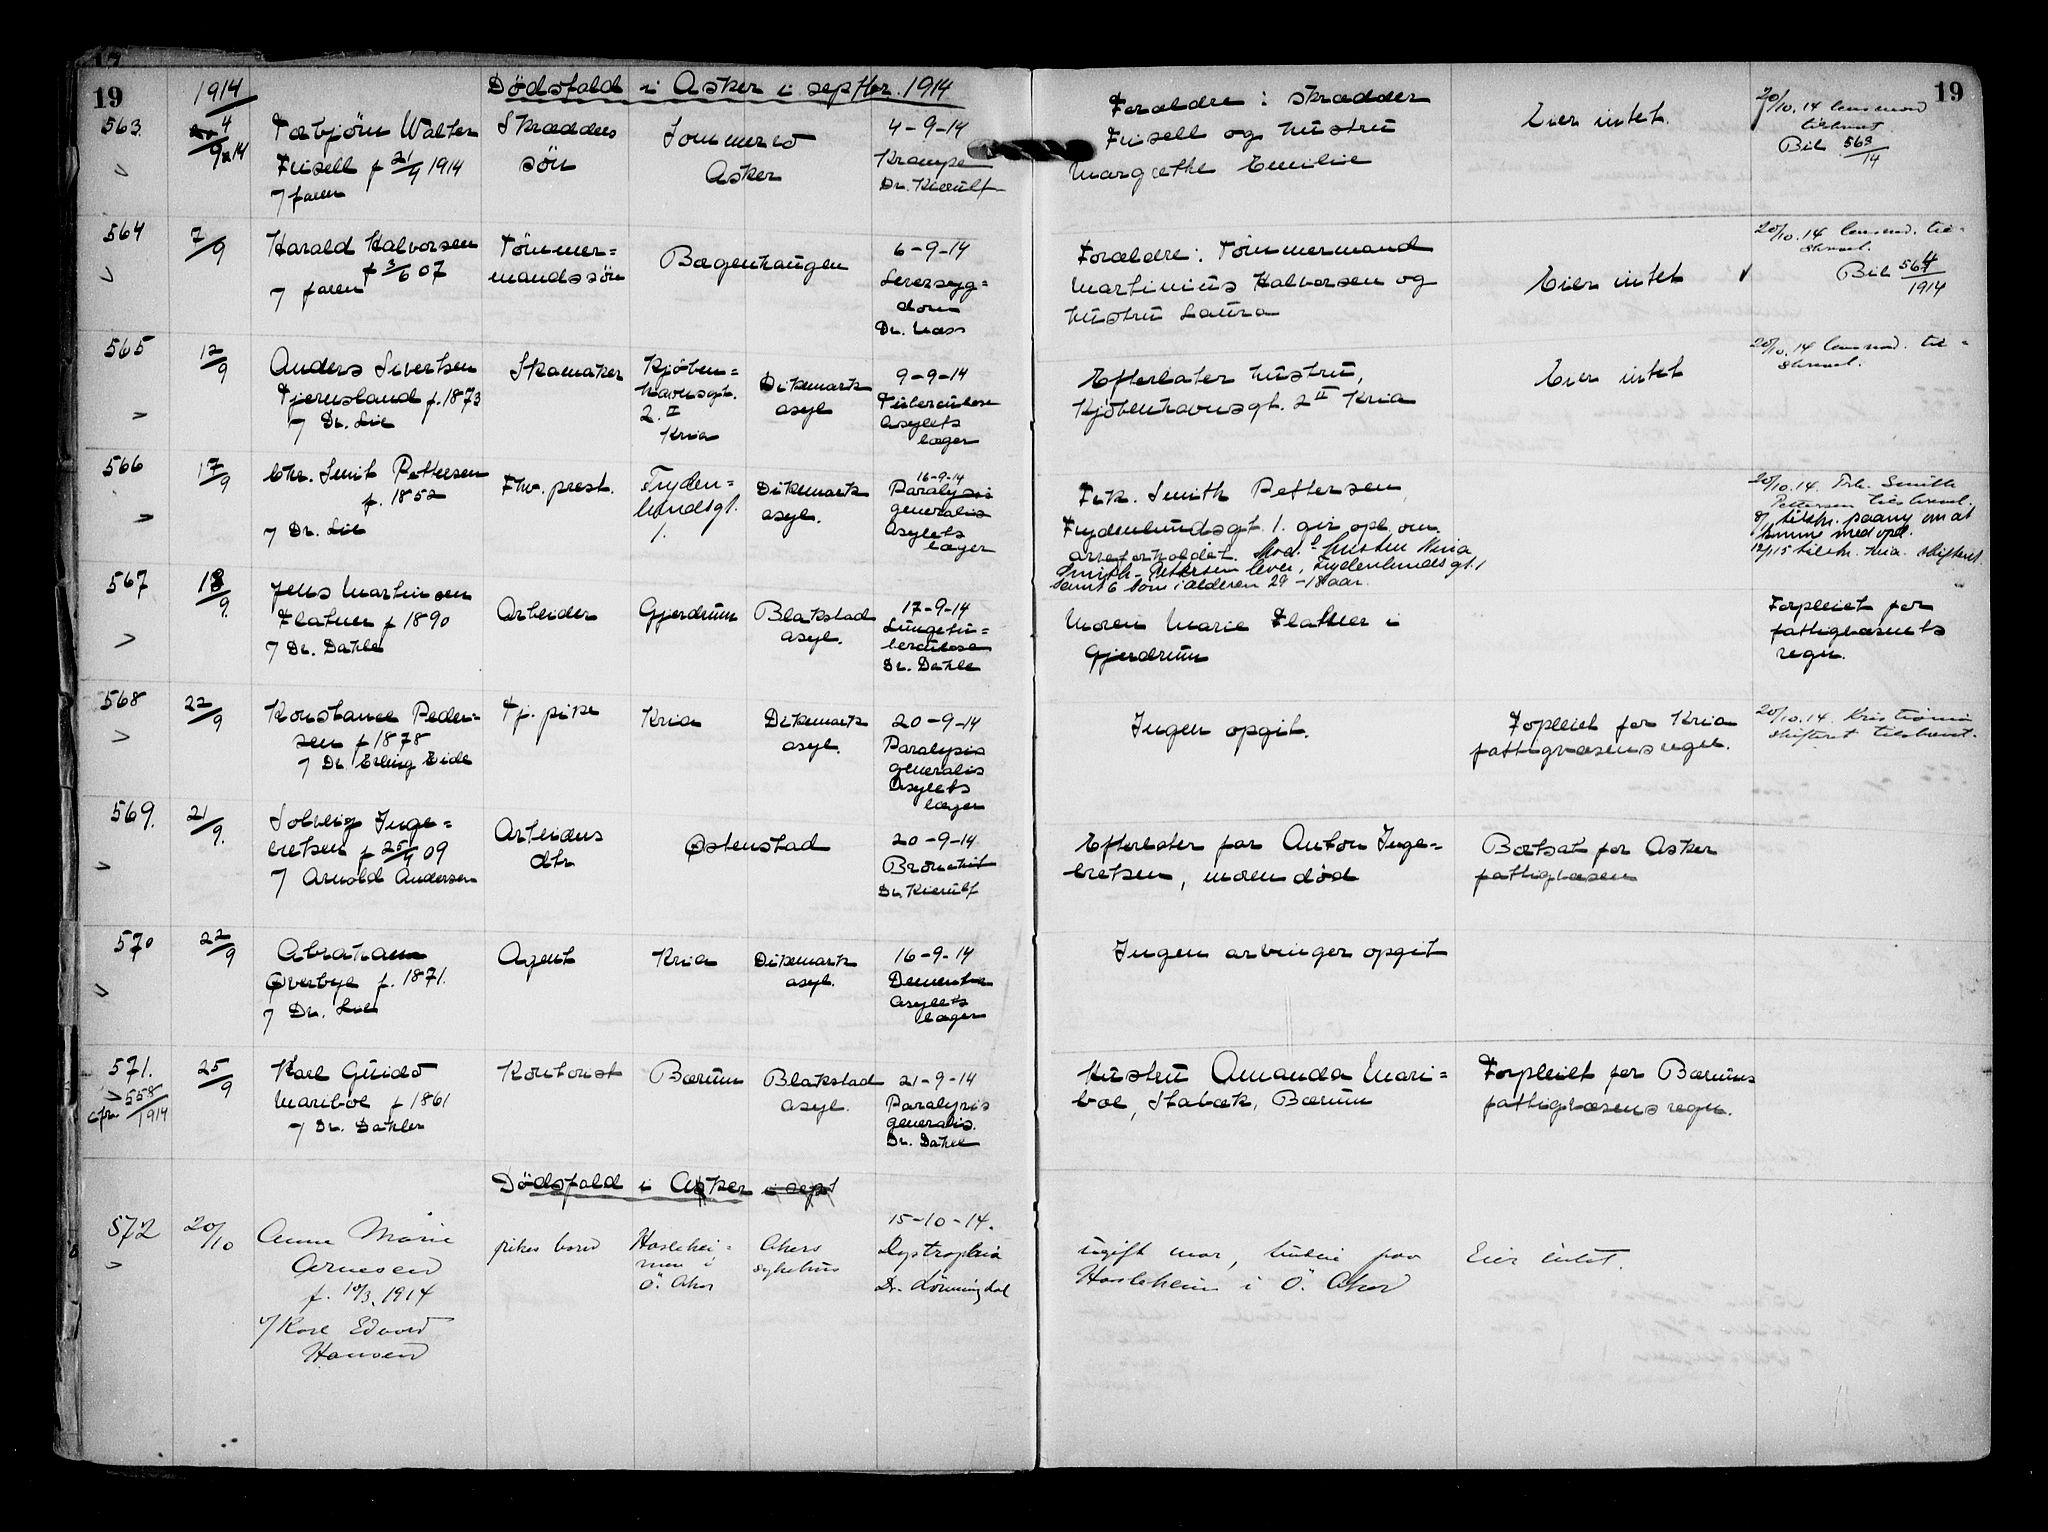 19
1914
Dödsfald i Asker i septbr. 1914
19
563.
4/9 14
Torbjörn Walter
Frisell f 21/4 1914
7 faren
Skrædders
sön
Sommero
Asker
4-9-14
Krampe
Dr. Kierulf
Foraldre : skrædder
Frisell og hustru
Margrethe Emilie
Eier intet.
20/10. 14 lensmand
tilskrevet.
Bil 563/14
564
7/9
Harald Halvorsen
f 3/6 07
7 faren
Tömmer=
mandssön
Bagenhaugen
6-9-14
Leversyg=
dom
Dr. Næss
Foraldre : Tömmermand
Martinius Halvorsen og
hustru Laura
Eier intet
20/10. 14 lensmd. til-
skrevet.
Bil 564/1914
565
12/9
Anders Sivertsen
Tjernsland f. 1873
7 Dr. Lie
Skomaker
Kjöben=
havnsgt.
2 II
Kria
Dikemark
asyl
9-9-14
Tuberculose
Asylets
læger
Efterlater hustru,
Kjöbenhavnsgt. 2 II Kria
Eier intet
20/10. 14 lensmd. til-
skrevet.
566
17/9
Chr. Smit Pettersen
f. 1852
7 Dr. Lie
Fhv. prest.
Fryden=
lundsgt.
1.
Dikemark
asyl.
16-9-14
Paralysis
generalis
Asylets
læger
Frk. Smith Pettersen,
Frydenlundsgt. 1. gir opl. om
arveforholdet.
Smith-Pettersen lever, Frydenlundsgt. 1
samt 6 barn i alderen 29-18 aar.
20/10. 14. Frk. Smith
Pettersen tilskrevet.
tilskr. paany om at
komme med opl.
12/1 15 tilskr. Kria. skifteret.
567
18/9.
Jens Martinsen
Flatner f 1890
7 Dr. Dahle
Arbeider
Gjerdrum
Blakstad
asyl.
17-9-14
Lungetu=
berculose
Dr. Dahle
Moren Marie Flatner i
Gjerdrum
Forpleiet for
fattigvæsnets
regn.
568
22/9
Konstance Peder=
sen f 1878
7 Dr. Erling Eide
Tj. pike
Kria
Dikemark
asyl.
20-9-14
Paralysis
generalis
Asylets
læger
Ingen opgit.
Forpleiet for Kria
fattigvæsens regn.
20/10. 14. Kristiania
skifteret tilskrevet.
569.
21/9.
Solveig Inge=
bretsen f 25/4 09
7 Arnold Andersen
Arbeiders
dtr
Østenstad
20-9-14
Bronchit
Dr. Kierulf
Efterlater far Anton Inge=
bretsen, moren død
Bortsat for Asker
fattigvæsen
570
22/9
Abraham
Øverbye f. 1871.
7 Dr. Lie
Agent
Kria
Dikemark
asyl.
16-9-14
Dementia
Asylets
læger
Ingen arvinger opgit
571.
cfr. 558/1914
25/9
Karl Guido
Mariboe f 1861
7 Dr. Dahler
Kontorist
Bærum
Blakstad
asyl.
21-9-14
Paralysis
generalis.
Dr. Dahle
Hustru Amanda Mari=
boe, Stabæk, Bærum
Forpleiet for Bærums
fattigvæsens regn.
Dödsfald i Asker i sept
572
20/10
Anna Marie
Arnesen
f. 10/3. 1914
7 Karl Edvard
Hansen
pikes barn
Haslehei-
men i
Ö. Aker
Akers
sykehus
15-10-14.
Dystrophia
Dr. Lönningdal
ugift mor, paa
Hasleheim i Ö. Aker
Eier intet.